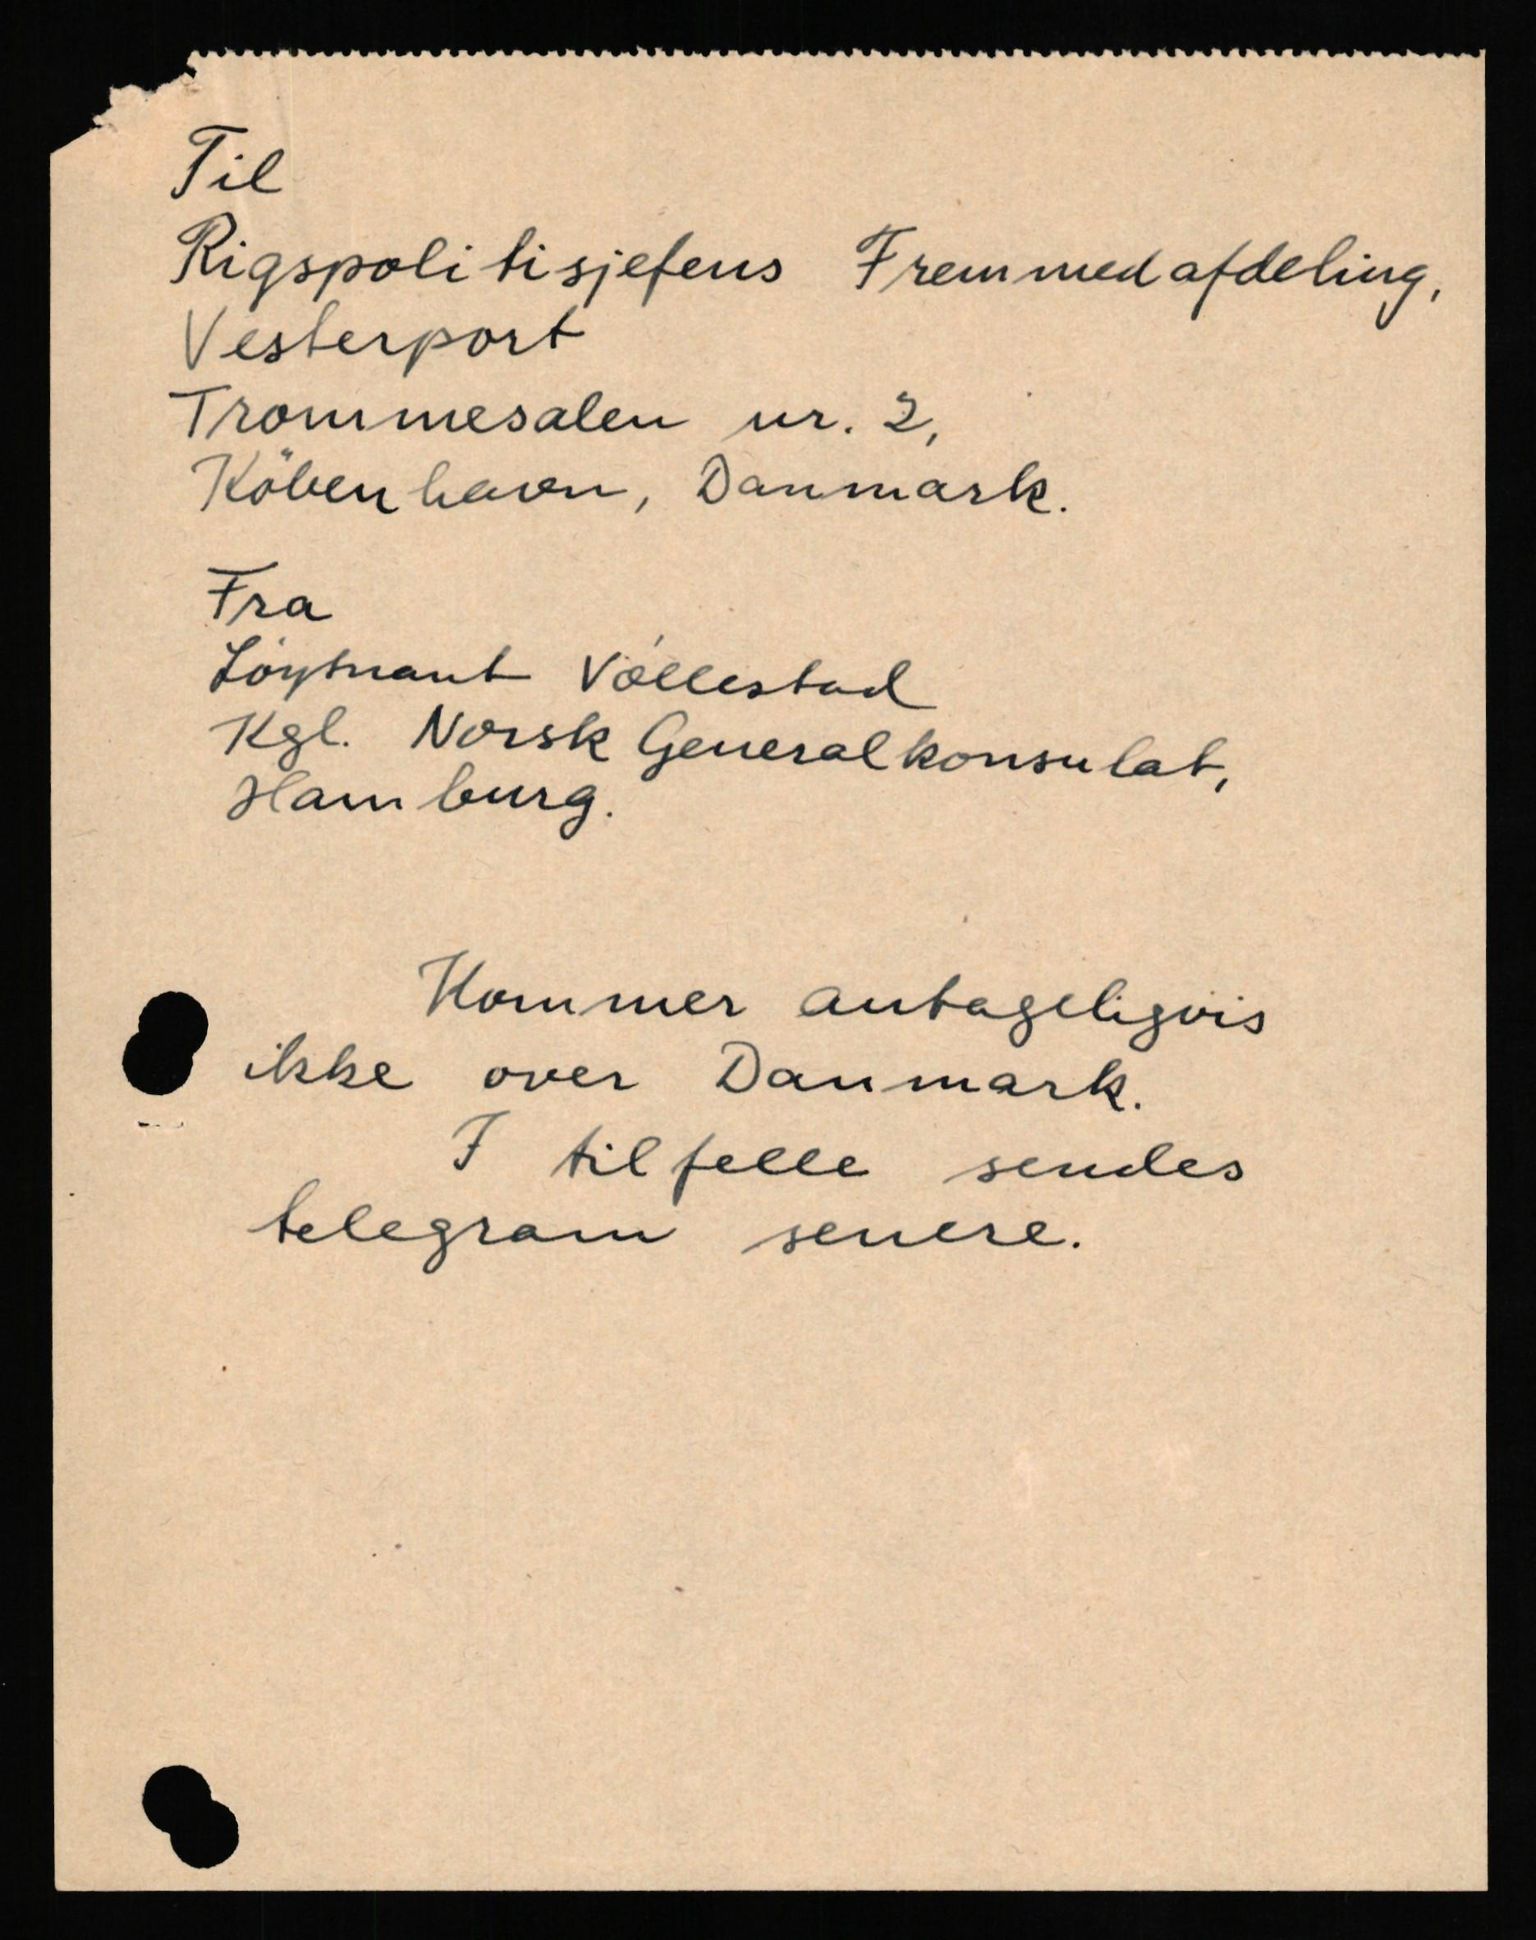 Til
Rigspolitisjefens Fremmedafdeling,
Vesterport
Trommesalen nr. 2,
Köbenhavn, Danmark.
Fra
Löytnant Vóllestad
Kgl. Norsk Generalkonsulat,
Hamburg.
Kommer antageligvis
ikke over Danmark.
I tilfelle sendes
telegram senere.